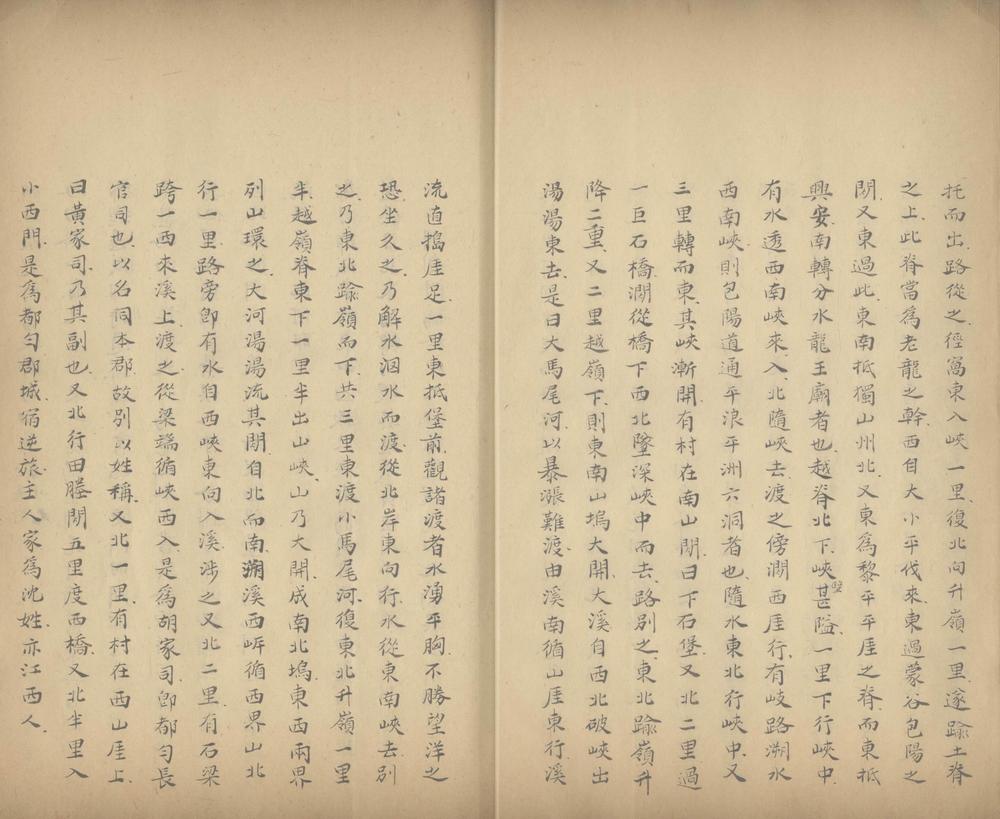 托而出路從之徑窩東入峽一里復北向升嶺一里遂踰土脊
之上此脊當為老龍之幹西自大小平伐來東過蒙谷包陽之
閒又東過此東南抵獨山州北又東為黎平平厓之脊而東抵
興安南轉分水龍王廟者也越脊北下峽壁甚隘一里下行峽中
有水透西南峽來入北隨峽去渡之傍澗西厓行有岐路溯水
西南峽則包陽道通平浪平洲六洞者也隨水東北行峽中又
三里轉而東其峽漸開有村在南山閒曰下石堡又北二里過
一巨石橋澗從橋下西北墜深峽中而去路別之東北踰嶺升
降二重又二里越嶺下則東南山塢大開大溪自西北破峽出
湯湯東去是曰大馬尾河以暴漲難渡由溪南循山厓東行溪
流直搗厓足一里東抵堡前觀諸渡者水湧平胸不勝望洋之
恐坐久之乃解水泅水而渡從北岸東向行水從東南峽去別
之乃東北踰嶺而下共三里東渡小馬尾河復東北升嶺一里
半越嶺脊東下一里半出山峽山乃大開成南北塢東西兩界
列山環之大河湯湯流其閒自北而南溯溪西岸循西界山北
行一里路旁卽有水自西峽東向入溪涉之又北二里有石梁
跨一西來溪上渡之從梁端循峽西入是為胡家司卽都勻長
官司也以名同本郡故別以姓稱又北一里有村在西山厓上
曰黃家司乃其副也又北行田塍閒五里度西橋又北半里入
小西門是為都勻郡城宿逆旅主人家為沈姓亦江西人